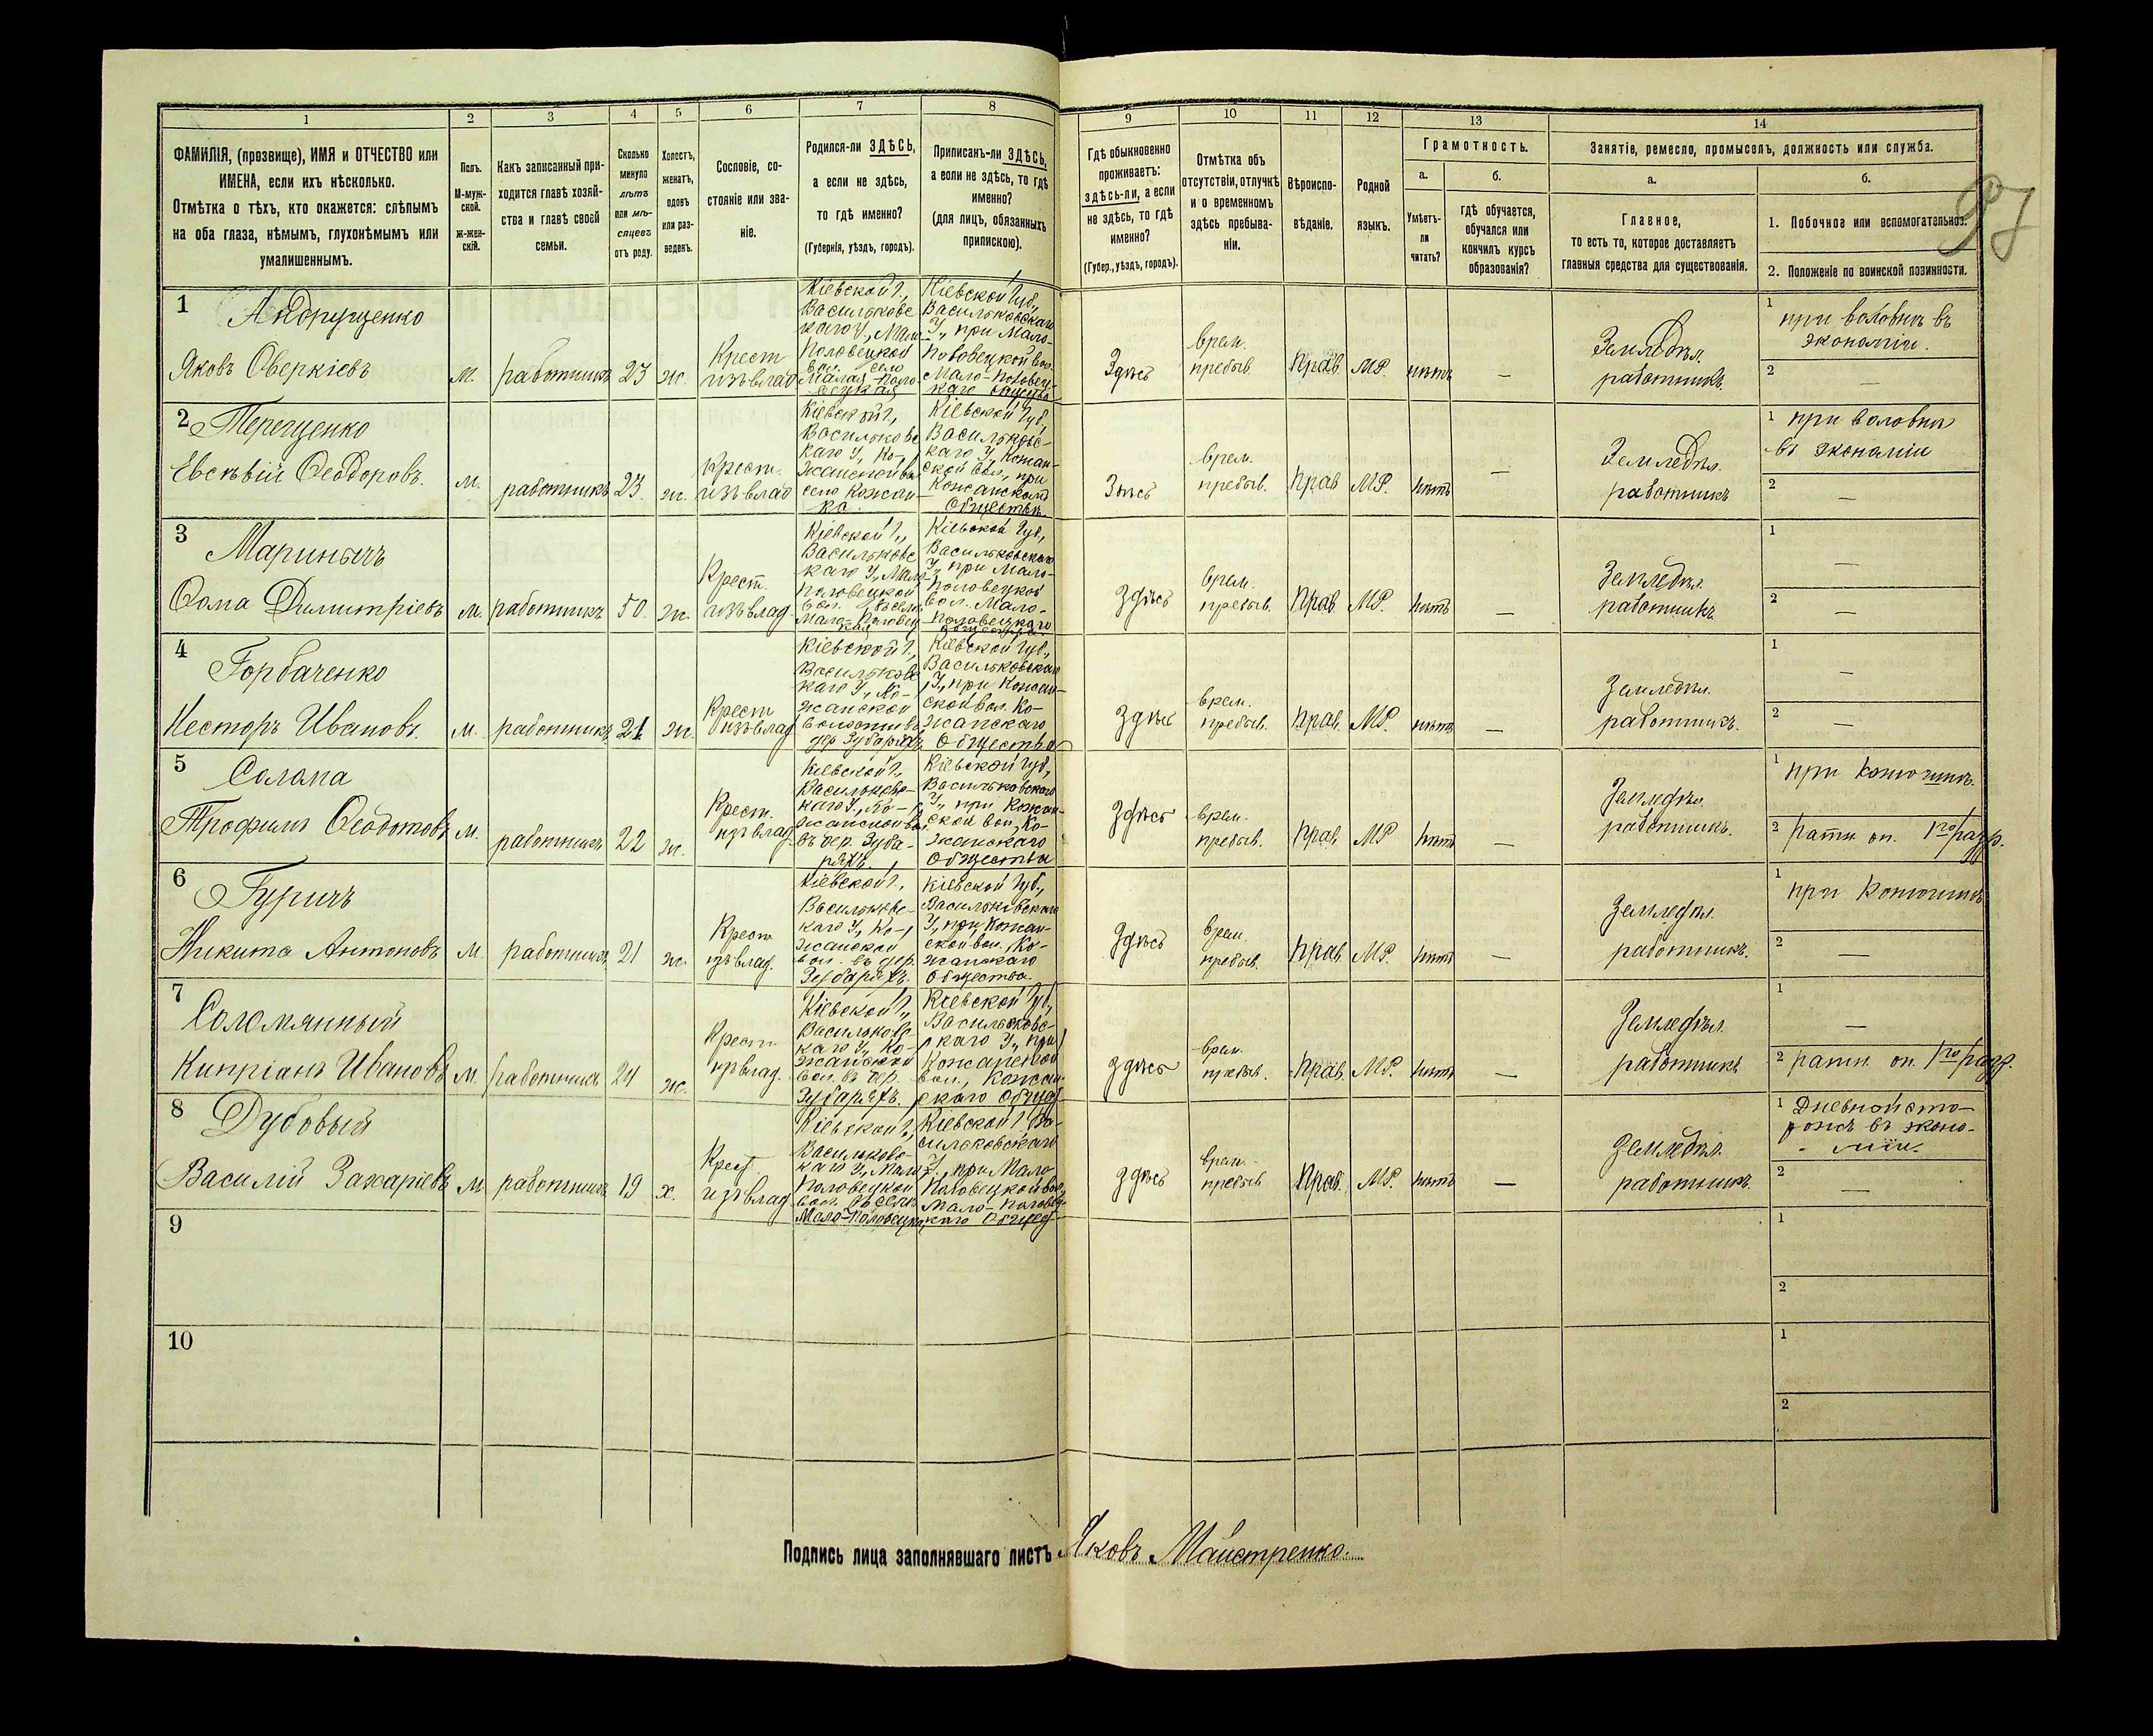 1
2
3
4
5
6
7
8
9
10
11
12
13
14
ФАМИЛІЯ, (прозвище), ИМЯ и ОТЧЕСТВО или
ИМЕНА, если ихъ нѣсколько.
Отмѣтка о тѣхъ, кто окажется: слѣпымъ
на оба глаза, нѣмымъ, глухонѣмымъ или
умалишеннымъ.
Полъ.
М-муж-
ской.
ж-жен-
скій.
Какъ записанный при-
ходится главѣ хозяй-
ства и главѣ своей
семьи.
Сколько
минуло
лѣтъ
или мѣ-
сяцевъ
отъ роду.
Холостъ,
женатъ,
вдовъ
или раз-
веденъ.
Сословіе, со-
стояніе или зва-
ніе.
Родился-ли ЗДѢСЬ,
а если не здѣсь,
то гдѣ именно?
(Губернія, уѣздъ, городъ).
Приписанъ-ли ЗДѢСЬ,
а если не здѣсь, то гдѣ
именно?
(для лицъ, обязанныхъ
припискою).
Гдѣ обыкновенно
проживаетъ:
здѣсь-ли, а если
не здѣсь, то гдѣ
именно?
(Губер., уѣздъ, городъ).
Отмѣтка объ
отсутствіи, отлучкѣ
и о временномъ
здѣсь пребыва-
ніи.
Вѣроиспо-
вѣданіе.
Родной
языкъ.
Грамотность.
а.
Умѣетъ-
ли
читать?
б.
гдѣ обучается,
обучался или
кончилъ курсъ
образованія?
Занятіе, ремесло, промыселъ, должность или служба.
а.
Главное,
то есть то, которое доставляетъ
главныя средства для существованія.
б.
1. Побочное или вспомогательное.
2. Положеніе по воинской повинности.
97
1
Андрущенко
Яковъ Оверкіевъ
м.
работникъ
23
ж.
Крест
изъ влад
Кіевской г.,
Васильковс
каго у., Мало-
Половецкой
вол. село
Малая-Поло-
вецкая
Кіевской губ.,
Васильковскаго
У., при Мало-
Половецкой вол.
Мало-Половец-
каго общества
Здѣсь
врем.
пребыв.
Прав.
МР.
нѣтъ
—
Земледѣл.
работникъ
1
при воловнѣ въ
экономіи.
2
—
2
Терещенко
Евсѣвій Ѳеодоровъ.
м.
работникъ
23
ж.
Крест.
изъ влад
Кіевской г.,
Васильковс
каго У., Ко-
жанской вол
село Кожан-
ка.
Кіевской губ,
Васильковс-
каго У., Кожан-
ской вол., при
Кожанскомъ
Обществѣ.
Здѣсь
врем.
пребыв.
Прав
МР.
нѣтъ
—
Земледѣл.
работникъ
1
при воловнѣ
въ экономіи
2
—
3
Мариничъ
Ѳома Димитріевъ
м.
работникъ
50.
ж.
Крест.
изъ влад
Кіевской г.,
Васильковс
каго У., Мало-
Половецкой
Кіевской губ,
Васильковскаго
У., при Мало-
Половецкой
вол. Мало-
Половецкаго
общества.
Здѣсь
врем.
пребыв.
Прав
МР.
нѣтъ
—
Земледѣл.
работникъ.
1
—
2
—
4
Горбаченко
Несторъ Ивановъ.
м.
работникъ
21
ж.
Крест
изъ влад
Кіевской г.,
Васильковс
каго У., Ко-
жанской
волости въ
дер Зубаряхъ
Кіевской губ.,
Васильковскаго
У., при Кожан-
ской вол. Ко-
жанскаго
Общества
Здѣсь
врем.
пребыв.
Прав.
МР.
нѣтъ
—
Земледѣл.
работникъ.
1
—
2
—
5
Салата
Трофимъ Ѳеодотовъ
м.
работникъ
22
ж.
Крест.
изъ влад.
Кіевской г.,
Васильковс-
каго У., Ко-
жанской вол.
въ дер. Зуба-
ряхъ.
Кіевской губ,
Васильковскаго
У., при Кожан-
ской вол., Ко-
жанскаго
Общества
Здѣсь
врем.
пребыв.
Прав.
МР
нѣтъ
—
Земледѣл.
работникъ.
1
при конюшнѣ.
2
ратн. оп. 1го разр.
6
Гуричъ
Никита Антоновъ
м.
работникъ
21
ж.
Крест.
изъ влад.
Кіевской г.,
Васильковс-
каго У., Ко-
жанской
вол. въ дер.
Зубаряхъ.
Кіевской губ.,
Васильковскаго
У., при Кожан-
ской вол., Ко-
жанскаго
Общества.
Здѣсь
врем.
пребыв.
Прав.
МР.
нѣтъ
—
Земледѣл.
работникъ.
1
при конюшнѣ
2
—
7
Соломянный
Кипріанъ Ивановъ
м.
работникъ
24
ж.
Крест
изъ влад.
Кіевской г.,
Васильковс
каго У., Ко-
жанской
вол. въ дер.
Зубаряхъ.
Кіевской губ.,
Васильковс-
каго У., при
Кожанской
вол., Кожан-
скаго Общес
здѣсь
врем.
пребыв.
Прав.
МР.
нѣтъ
—
Земледѣл.
работникъ
1
—
2
ратн. оп. 1го разр.
8
Дубовый
Василій Захаріевъ
м
работникъ
19
х.
Крест.
изъ влад
Кіевской г.,
Васильковс-
каго У., Мало-
Половецкой
вол. въ селѣ
Мало-Половецк
Кіевской г., Ва-
сильковскаго
У., при Мало
Половецкой вол.
Мало-Половец-
каго Общес
здѣсь
врем.
пребыв
Прав.
МР.
нѣтъ
—
Земледѣл.
работникъ.
1
Дневной сто-
рожъ въ эконо-
міи.
2
—
9
1
2
10
1
2
Подпись лица заполнявшаго листъ Яковъ Майстренко.